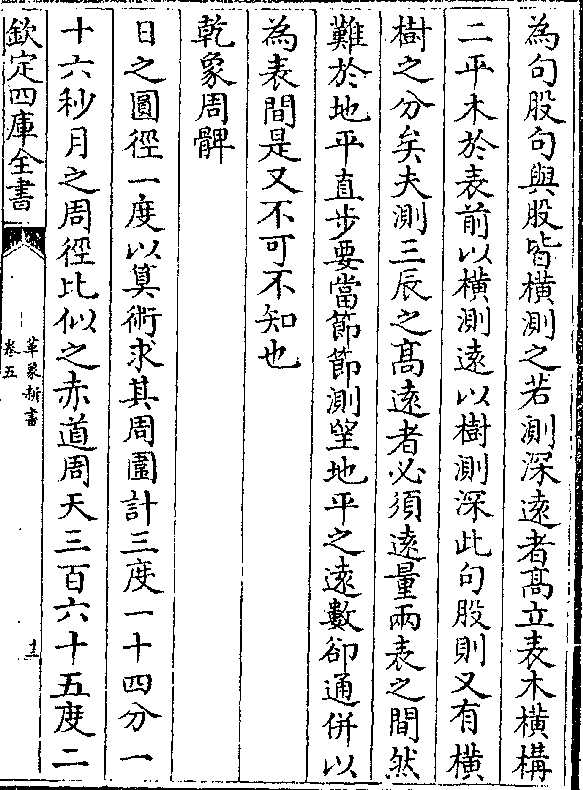 為句股句與股皆横測之若測深逺者髙立表木横構
二平木於表前以横測逺以樹測深此句股則又有横
樹之分矣夫測三辰之髙逺者必須逺量兩表之間然
難於地平直步要當節節測望地平之逺數卻通併以
為表間是又不可不知也
乾象周髀
日之圓徑一度以算術求其周圍計三度一十四分一
十六秒月之周徑比似之赤道周天三百六十五度二
欽定四庫全書
革象新書
卷五
十三